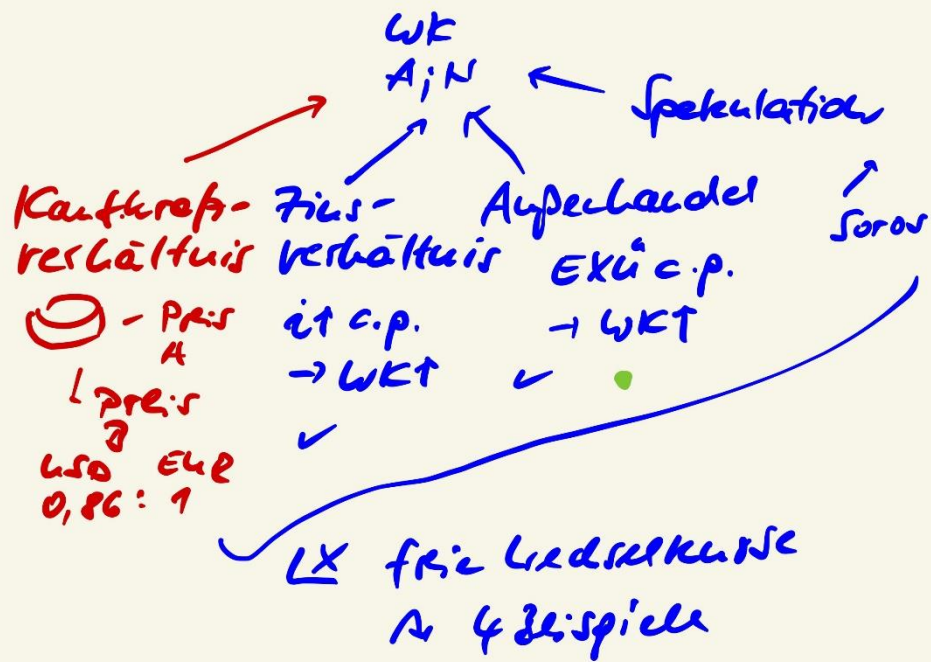 WK
A; N
Spekulation
Soros
Kaufkraft-
verhältnis
- Preis
A
Preis
B
USD EUR
0,86 : 1
Zins-
verhältnis
i↑ c.p.
→ WK↑
✓
Außenhandel
EXÜ c.p.
→ WK↑
✓
freie Wechselkurse
4 Beispiele